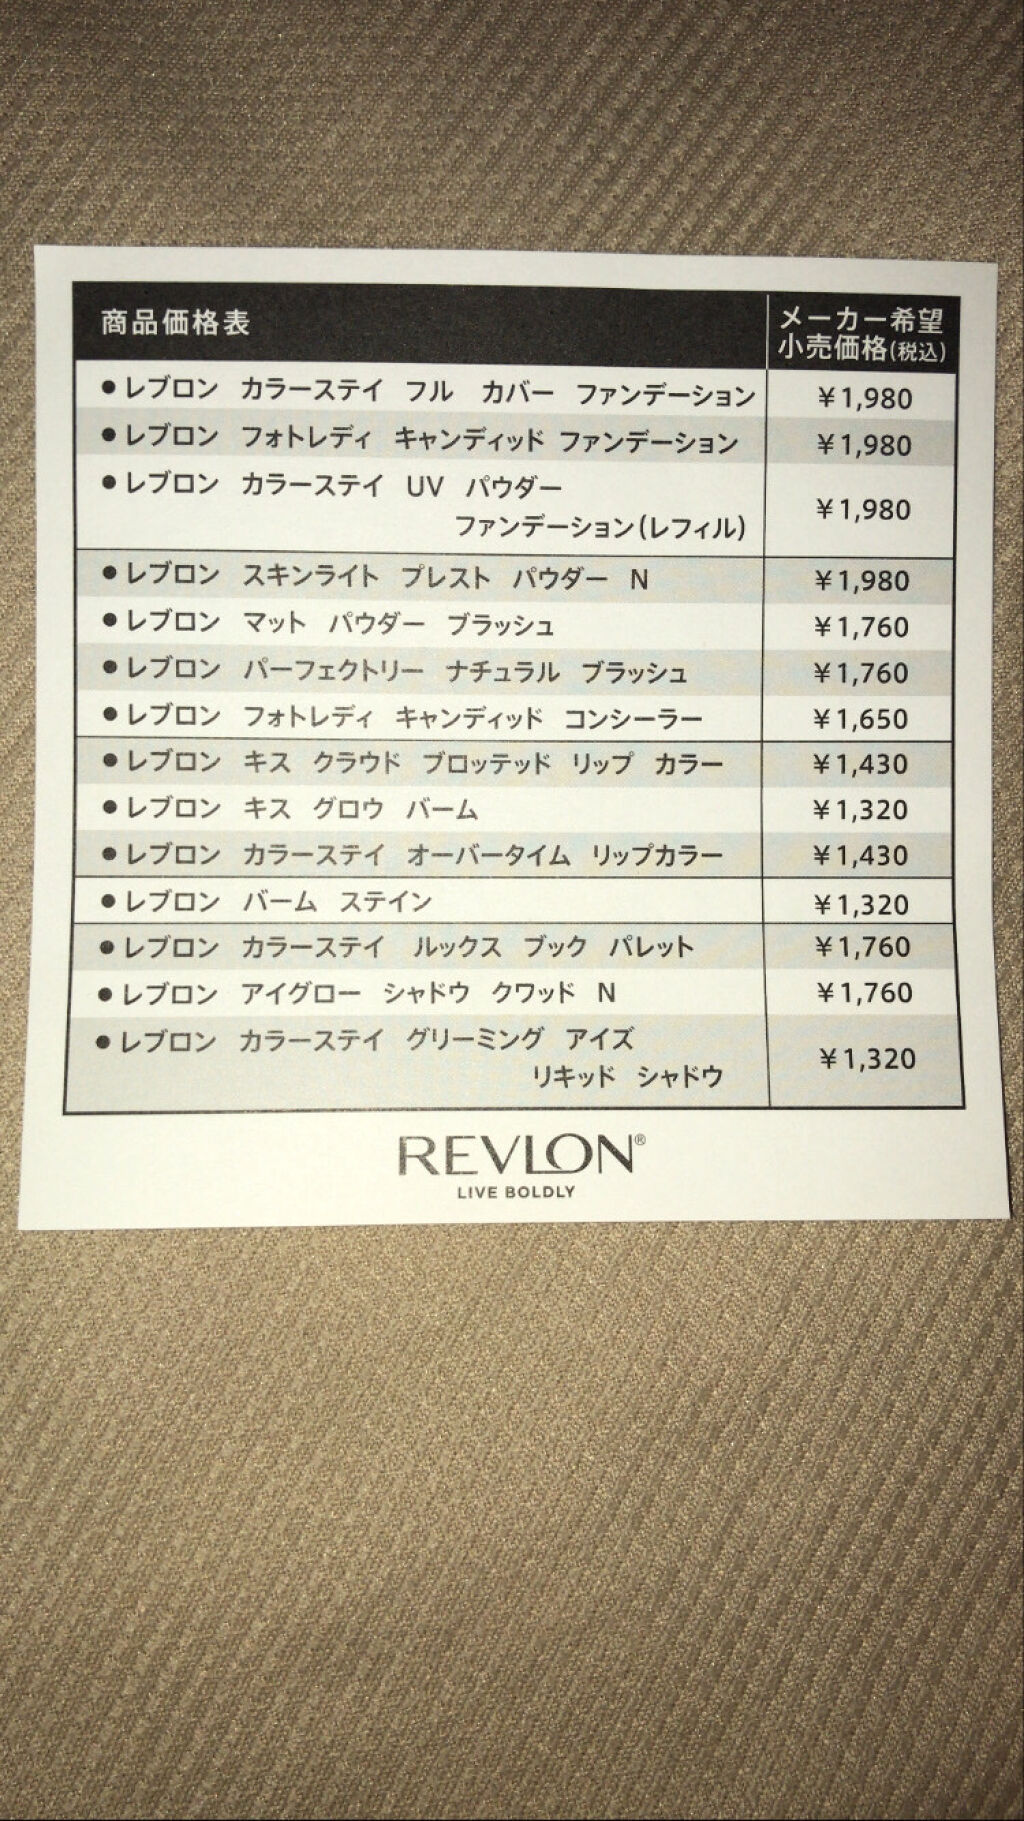 商品価格表 メーカー希望
小売価格(税込)
●レブロン カラーステイ フル カバー ファンデーション ¥1,980
●レブロン フォトレディ キャンディッド ファンデーション ¥1,980
●レブロン カラーステイ UV パウダー
ファンデーション(レフィル) ¥1,980
●レブロン スキンライト プレスト パウダー N ¥1,980
●レブロン マット パウダー ブラッシュ ¥1,760
●レブロン パーフェクトリー ナチュラル ブラッシュ ¥1,760
●レブロン フォトレディ キャンディッド コンシーラー ¥1,650
●レブロン キス クラウド ブロッテッド リップ カラー ¥1,430
●レブロン キス グロウ バーム ¥1,320
●レブロン カラーステイ オーバータイム リップカラー ¥1,430
●レブロン バーム ステイン ¥1,320
●レブロン カラーステイ ルックス ブック パレット ¥1,760
●レブロン アイグロー シャドウ クワッド N ¥1,760
●レブロン カラーステイ グリーミング アイズ
リキッド シャドウ ¥1,320
REVLON®
LIVE BOLDLY